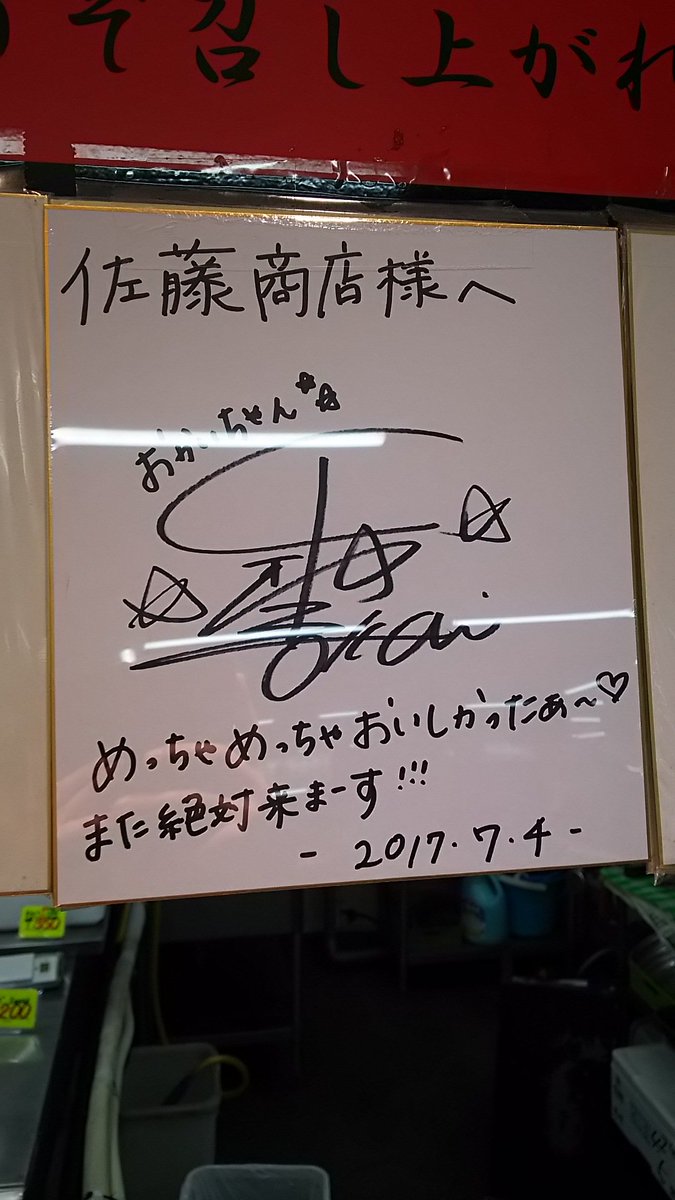 ぞ召し上がれ
佐藤商店様へ
おかいちゃん☆☆
Okai
めっちゃめっちゃおいしかったぁ〜♡
また絶対来まーす!!!
- 2017.7.4 -
350
200